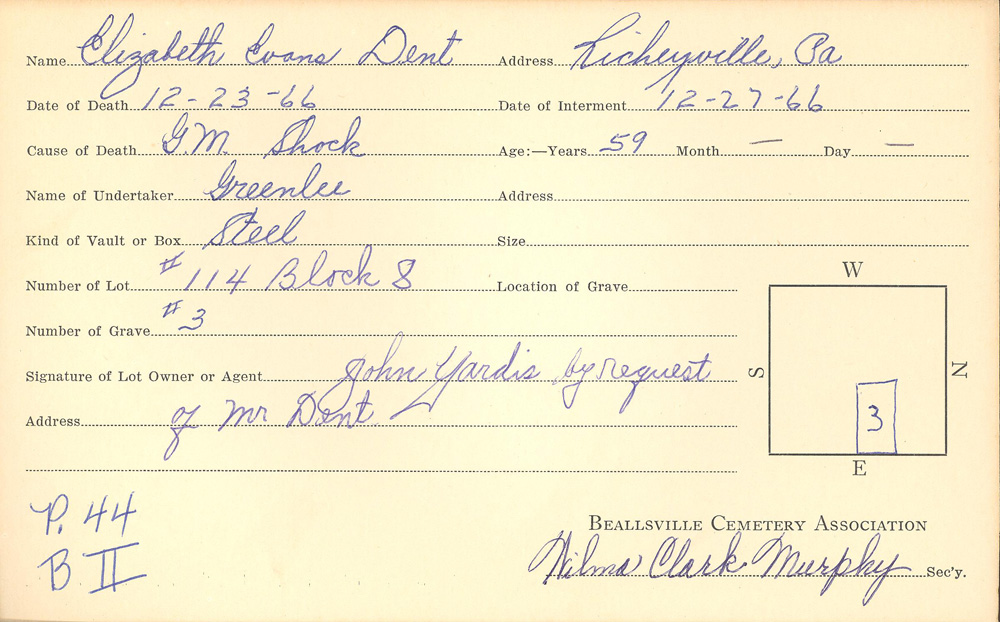 Name Elizabeth Evans Dent Address Richeyville, Pa
Date of Death 12-23-66 Date of Interment 12-27-66
Cause of Death G.M. Shock Age:—Years 59 Month — Day —
Name of Undertaker Greenlee Address
Kind of Vault or Box Steel Size
Number of Lot #114 Block 8 Location of Grave
Number of Grave #3
Signature of Lot Owner or Agent John Yardis by request
Address of Mr Dent
W
S
N
3
E
P. 44
B II
BEALLSVILLE CEMETERY ASSOCIATION
Wilma Clark Murphy Sec'y.